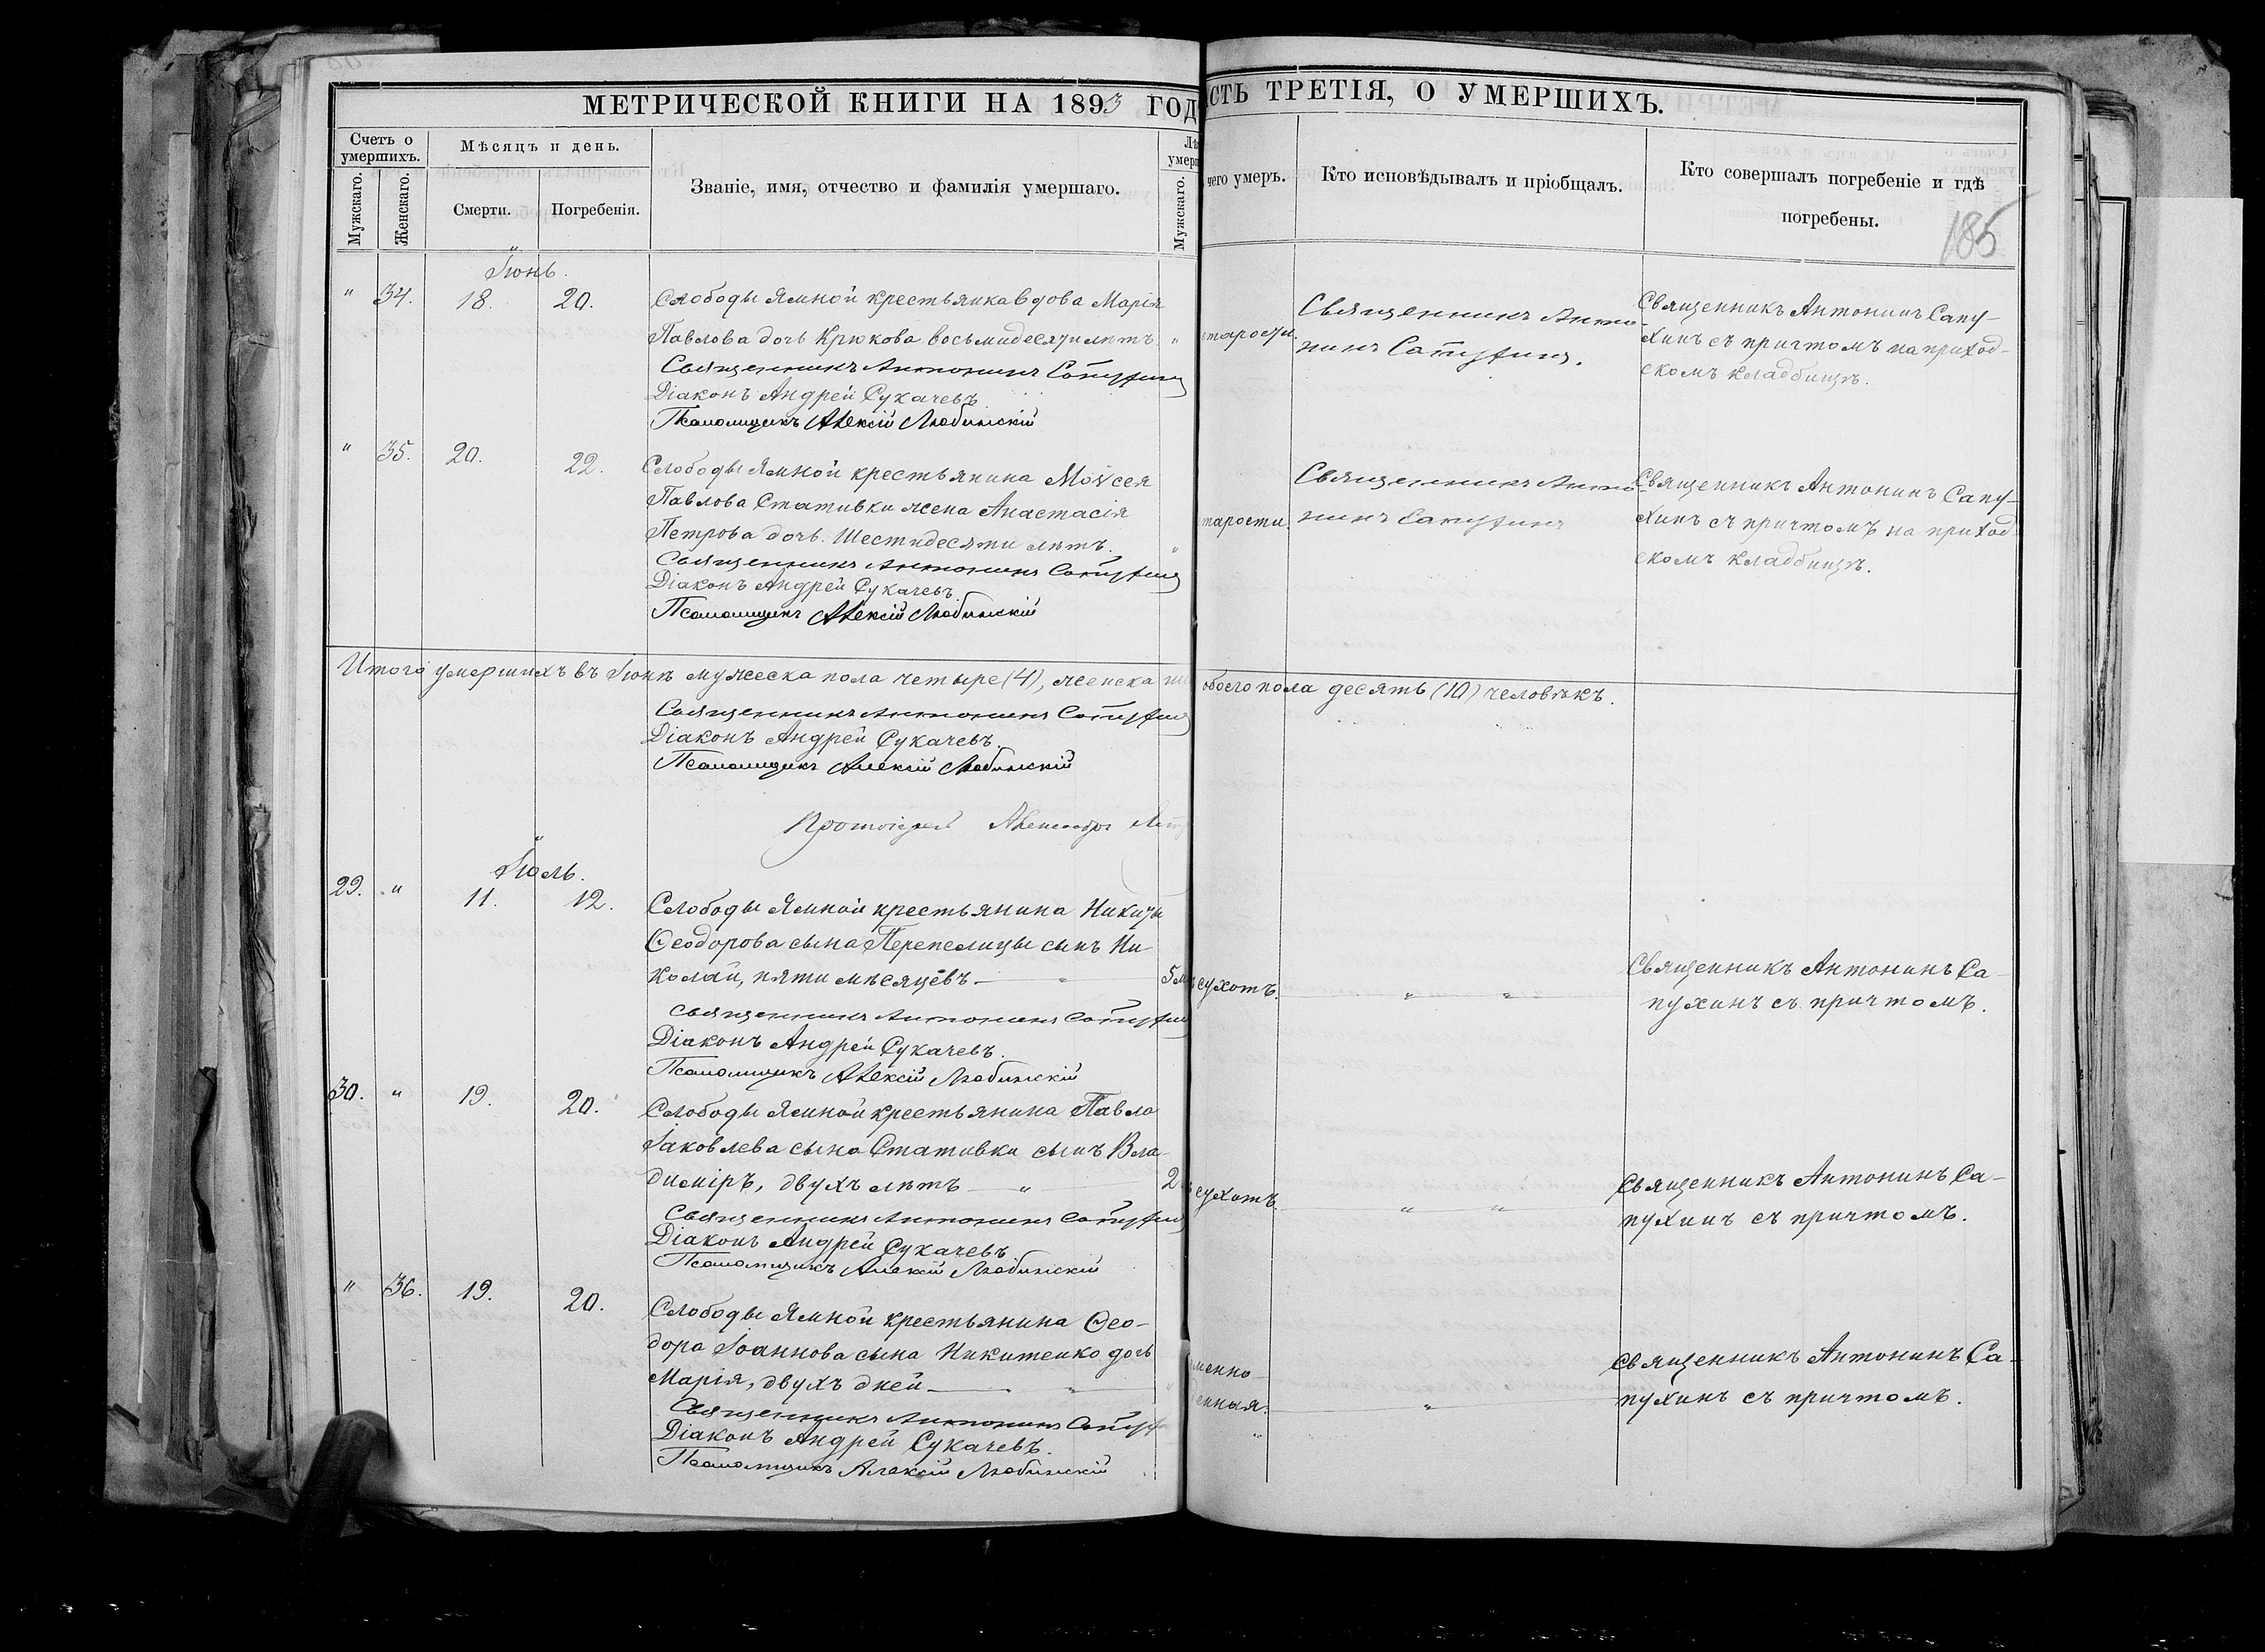 МЕТРИЧЕСКОЙ КНИГИ НА 1893 ГОД
Счетъ о умершихъ.
Мужскаго.
Женскаго.
Мѣсяцъ и день.
Смерти.
Погребенія.
Званіе, имя, отчество и фамилія умершаго.
Лѣ
умерш
Мужскаго.
Іюнь.
" 34. 18. 20. Слободы Ямной крестьянка вдова Марія
Павлова дочь Крюкова восьмидесяти лѣтъ. "
Священникъ Антонинъ Сапухинъ
Діаконъ Андрей Сукачевъ.
Псаломщикъ Алексій Любинскій
" 35. 20. 22. Слободы Ямной крестьянина Моѵсея
Павлова Стативки жена Анастасія
Петрова дочь. Шестидесяти лѣтъ. "
Священникъ Антонинъ Сапухинъ
Діаконъ Андрей Сукачевъ.
Псаломщикъ Алексій Любинскій
Итого умершихъ въ Іюнѣ мужеска пола четыре (4), женска
Священникъ Антонинъ Сапухинъ
Діаконъ Андрей Сукачевъ.
Псаломщикъ Алексій Любинскій
Протоіерей Александръ
Іюль.
29. " 11. 12. Слободы Ямной крестьянина Никиты
Ѳеодорова сына Перепелицы сынъ Ни-
колай, пяти мѣсяцевъ — " 5 м
Священникъ Антонинъ Сапухинъ
Діаконъ Андрей Сукачевъ.
Псаломщикъ Алексій Любинскій
30. " 19. 20. Слободы Ямной крестьянина Павла
Іаковлева сына Стативки сынъ Вла-
диміръ, двухъ лѣтъ — " — 2
Священникъ Антонинъ Сапухинъ
Діаконъ Андрей Сукачевъ
Псаломщикъ Алексій Любинскій
" 36. 19. 20. Слободы Ямной крестьянина Ѳео-
дора Іоаннова сына Никитенко дочь
Марія, двухъ дней — " "
Священникъ Антонинъ Сапух
Діаконъ Андрей Сукачевъ.
Псаломщикъ Алексій Любинскій
СТЬ ТРЕТІЯ, О УМЕРШИХЪ.
чего умеръ.
Кто исповѣдывалъ и пріобщалъ.
Кто совершалъ погребеніе и гдѣ
погребены.
185
старости.
Священникъ Анто-
нинъ Сапухинъ.
Священникъ Антонинъ Сапу-
хинъ съ причтомъ на приход-
скомъ кладбищѣ.
тарости
Священникъ Анто-
нинъ Сапухинъ
Священникъ Антонинъ Сапу-
хинъ съ причтомъ на приход-
скомъ кладбищѣ.
обоего пола десять (10) человѣкъ.
сухотъ. " "
Священникъ Антонинъ Са-
пухинъ съ причтомъ.
сухотъ. " "
Священникъ Антонинъ Са-
пухинъ съ причтомъ.
менно-
енная. "
Священникъ Антонинъ Са-
пухинъ съ причтомъ.